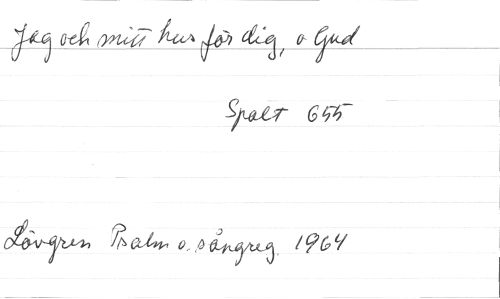 Jag och mitt hus för dig, o Gud
Spalt 655
Lövgren Psalm o. sångreg. 1964